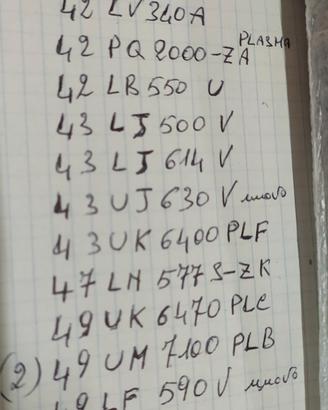 42 LV340A
42 PQ 2000-ZA PLASMA
42 LB 550 U
43 LJ 500 V
43 LJ 614 V
43 UJ 630 V много
43 UK 6400 PLF
47 LN 577 S-ZK
49 UK 6470 PLC
(2) 49 UM 7100 PLB
49 LF 590 V много